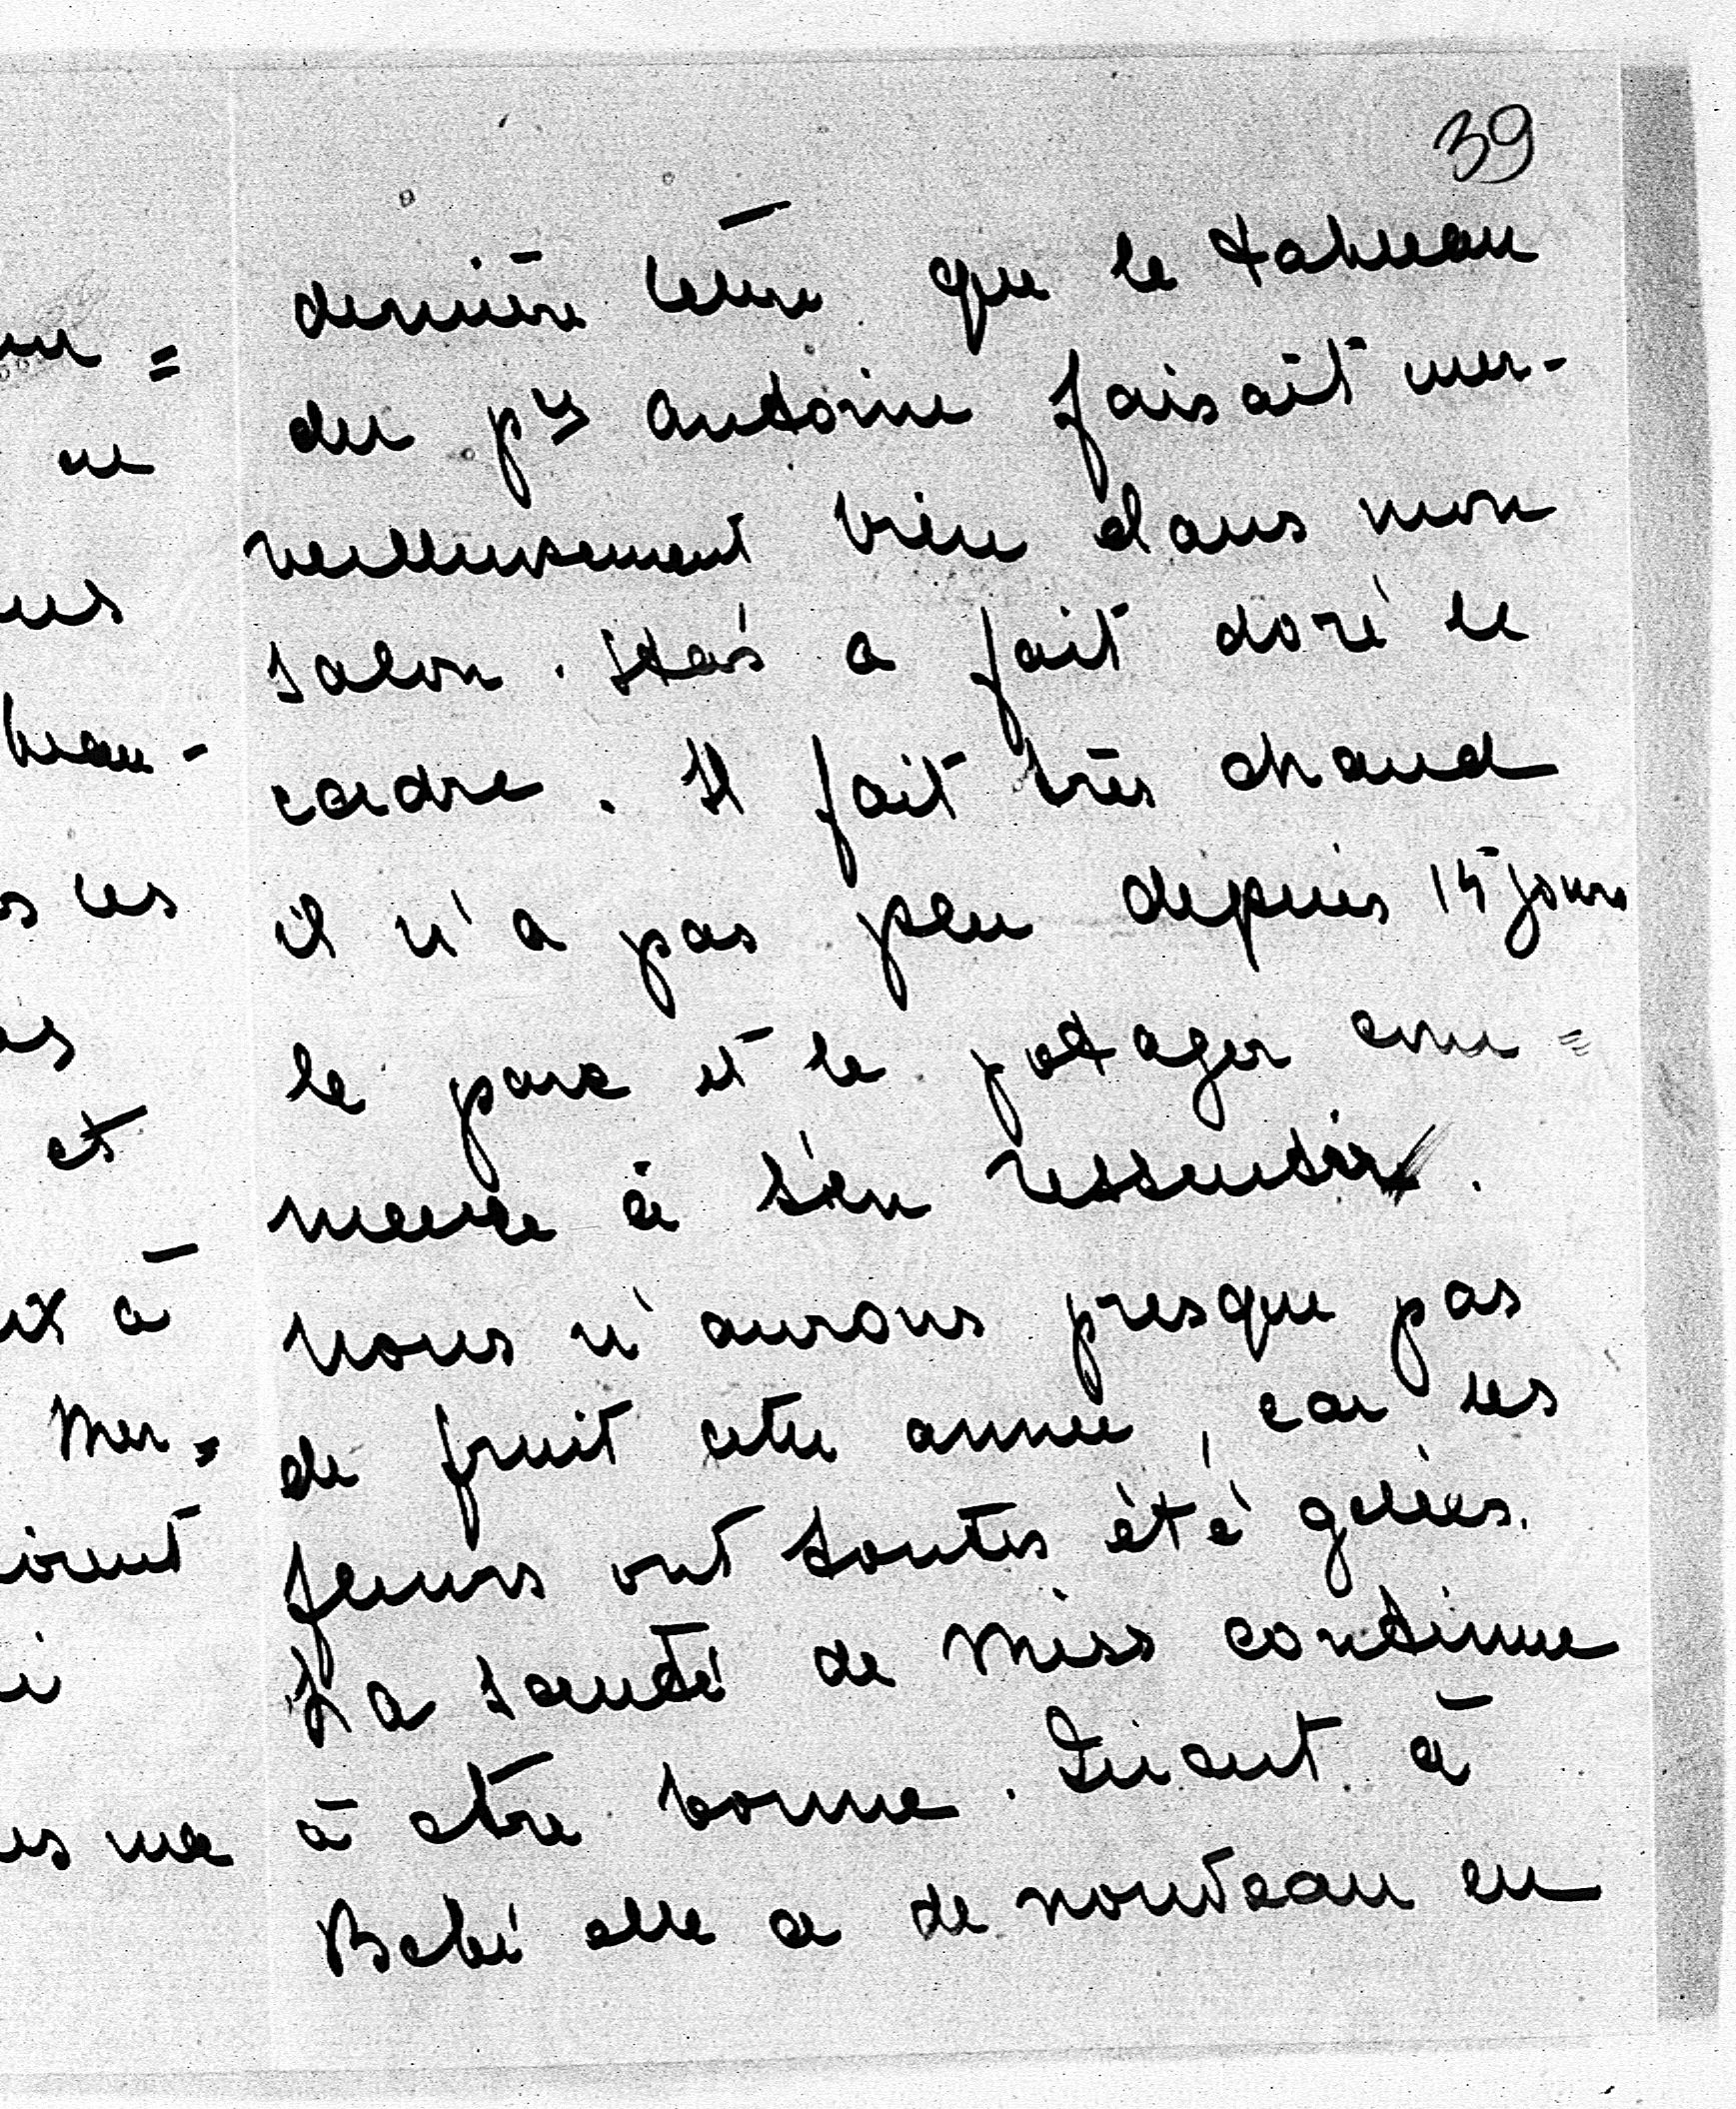 39
dernière lettre que le tableau
du pce Antoine faisait mer-
veilleusement bien dans mon
salon. Stas a fait doré le
cadre. Il fait très chaud
il n'a pas plu depuis 15 jours
le parc et le potager com=
mence à s'en ressentir.
Nous n'aurons presque pas
de fruit cette année, car les
fleurs ont toutes été gelées.
La santé de Miss continue
à être bonne. Quant à
Bébé elle a de nouveau eu
ne
beau-
et
Mer=